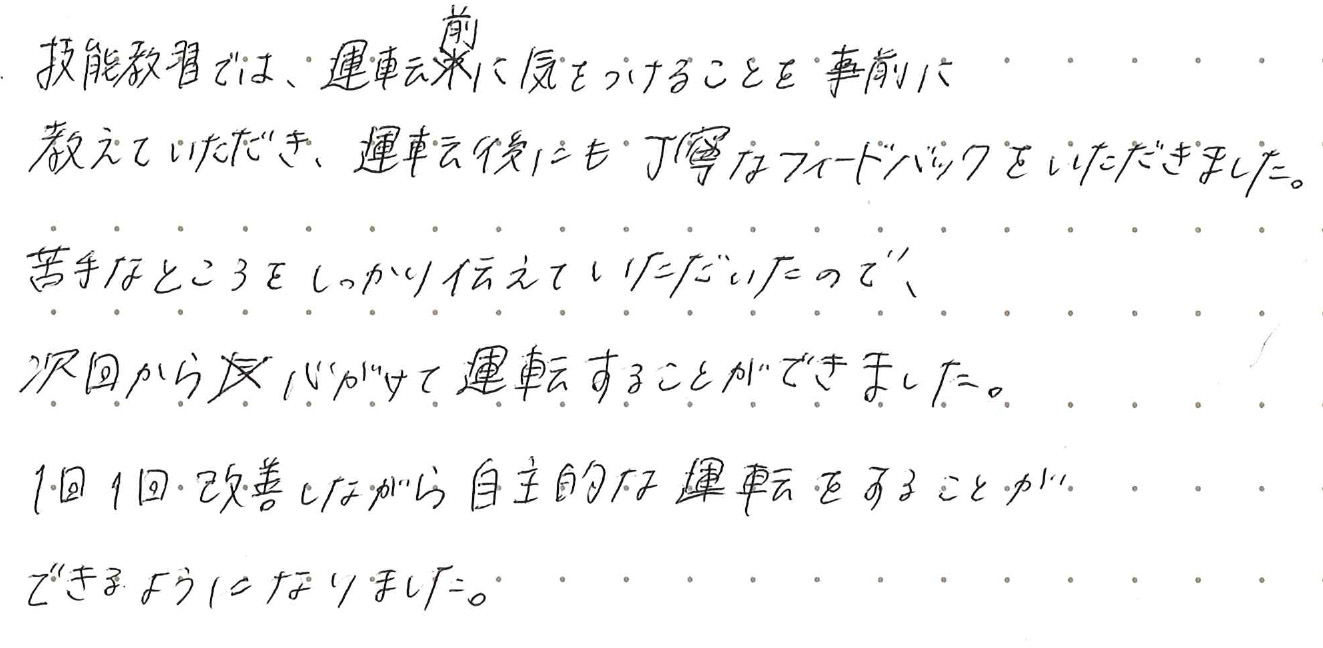 技能教習では、運転前に気をつけることを事前に
教えていただき、運転後にも丁寧なフィードバックをいただきました。
苦手なところをしっかり伝えていただいたので、
次回から心がけて運転することができました。
1回1回改善しながら自主的な運転をすることが
できるようになりました。